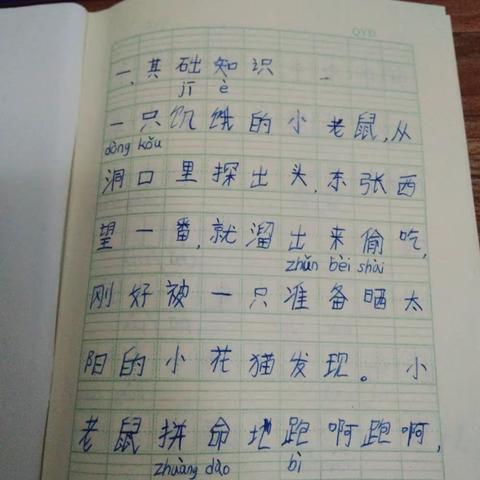 一、其础知识
jī è
一只饥饿的小老鼠,从
dòng kǒu
洞口里探出头,东张西
望一番,就溜出来偷吃,
zhǔn bèi shài
刚好被一只准备晒太
阳的小花猫发现。小
老鼠拼命地跑啊跑啊,
zhuàng dào bì